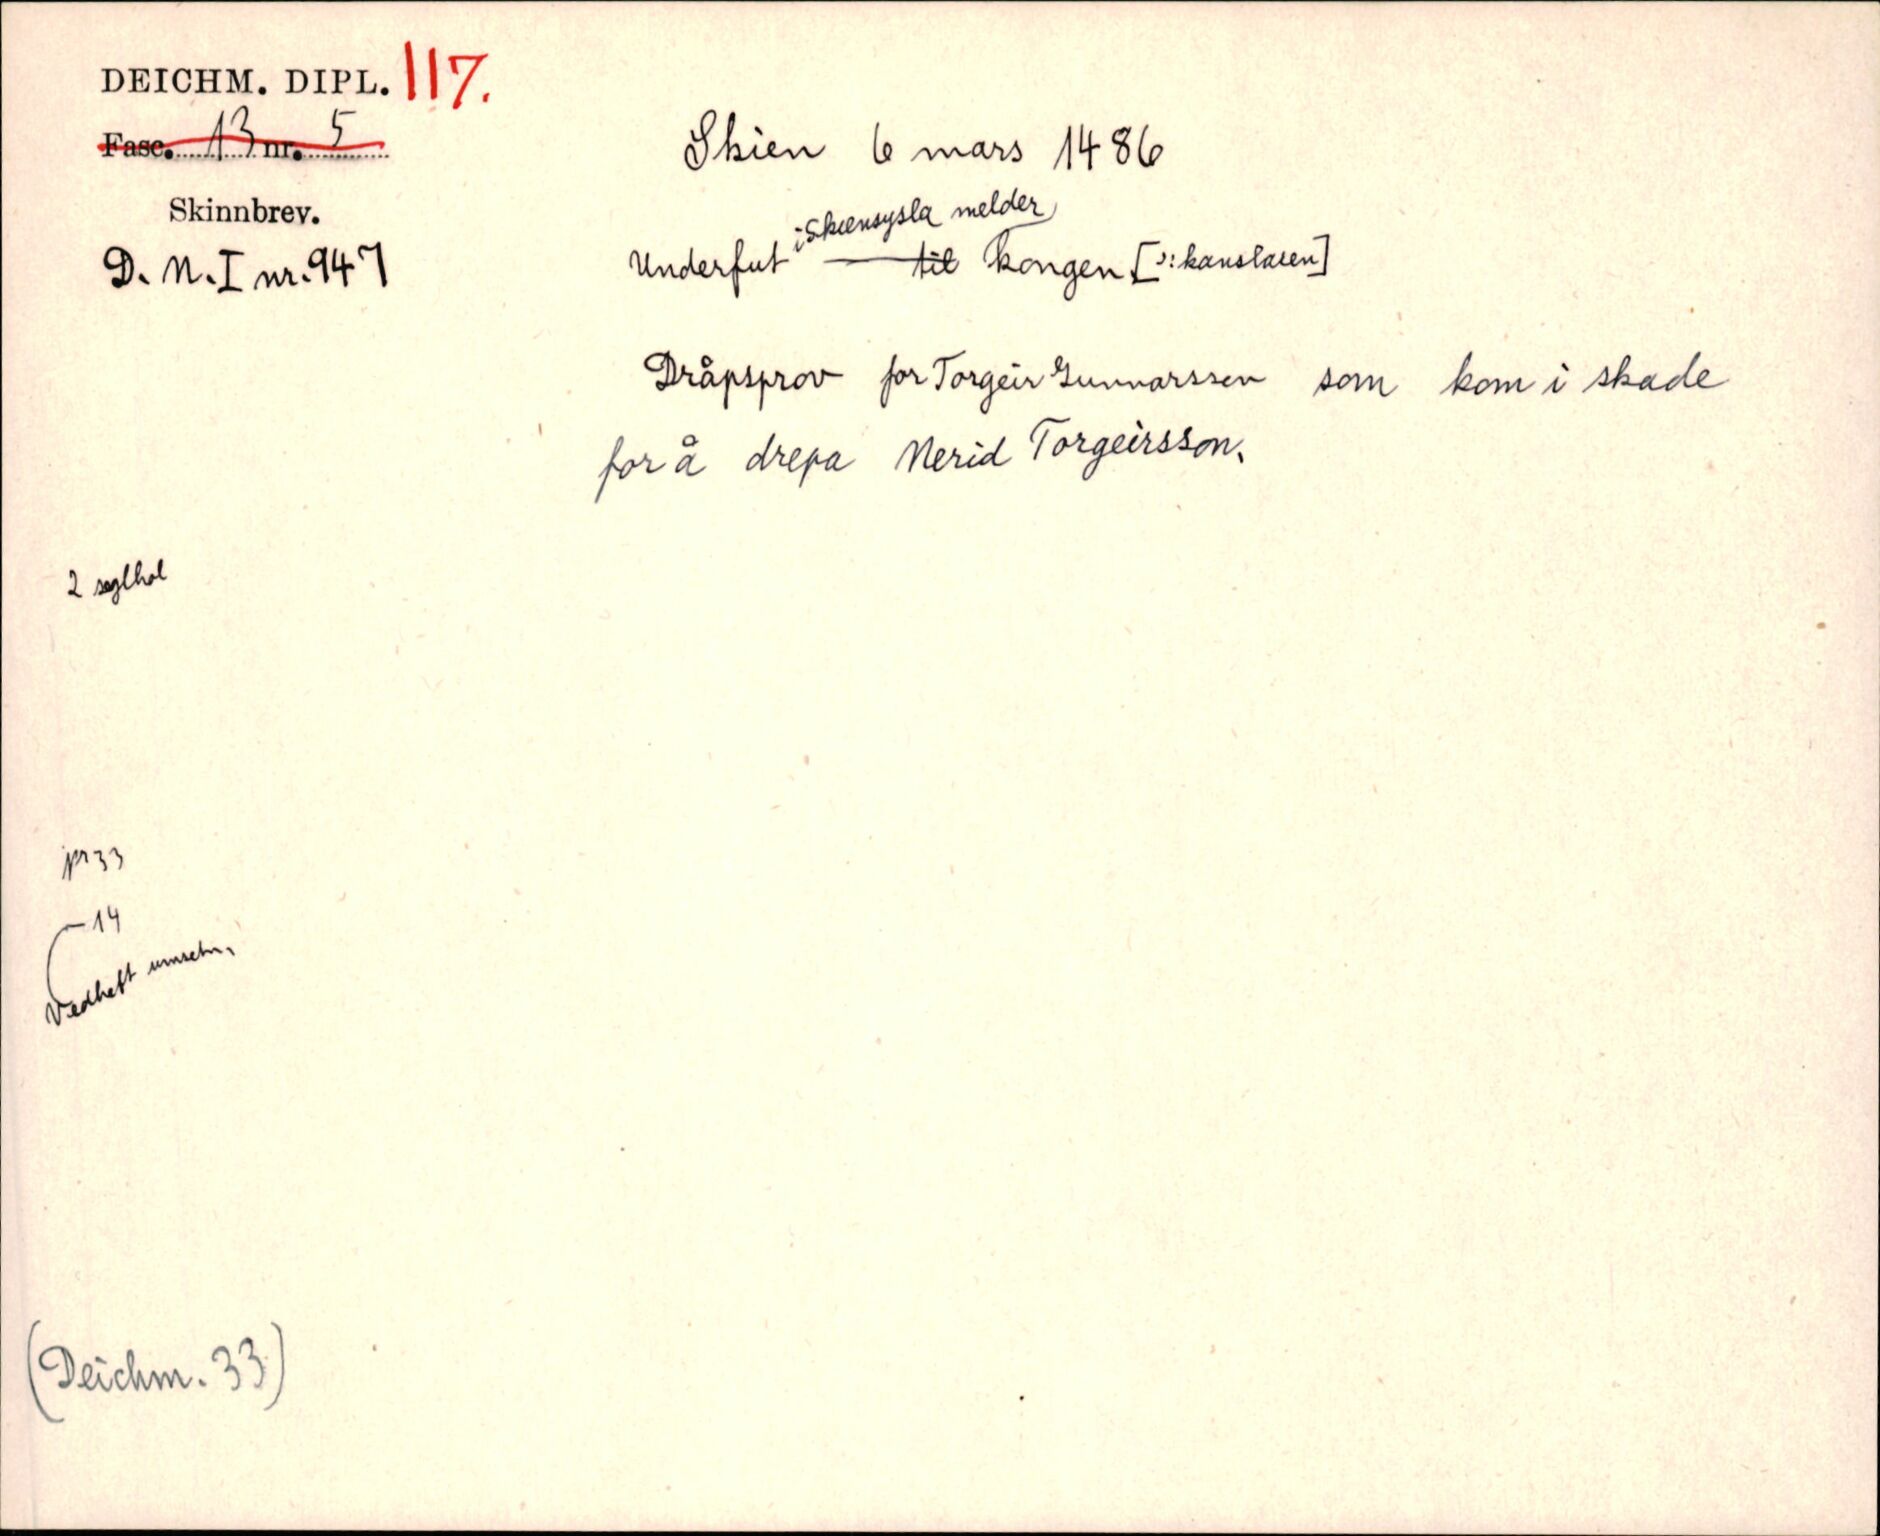 DEICHM. DIPL. 117.
Fasc. 13 nr. 5
Skinnbrev.
D. N. I nr. 947
Skien 6 mars 1486
i Skiensysla melder
Underfut til kongen [ɔ: kanslaren]
Dråpsprov for Torgeir Gunnarssen som kom i skade
for å drepa Nerid Torgeirsson.
2 seglhol
pr 33
14
Vedheft umsetn.
(Deichm. 33)